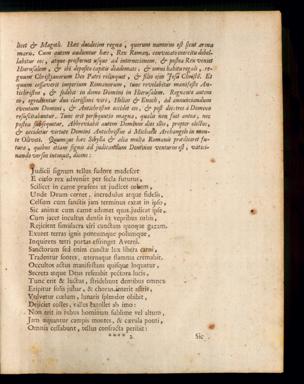 licet & Magoth. Hæc duodecim regna, quorum numerus est sicut arena
maris. Cum autem audierit hæc, Rex Roman, convocato exercitu debel-
labitur eos, atque prosternet usque ad internecionem, & postea Rex veniet
Hierusalem, & ibi deposito capitis diademate, & omni habitu regali, re-
gnum Christianorum Deo Patri relinquet, & filio ejus Jesu Christo. Et
quum cessaverit imperium Romanorum, tunc revelabitur manifeste An-
tichristus, & sedebit in domo Domini in Hierusalem. Regnante autem
eo, egredientur duo clarissimi viri, Helias & Enoch, ad annunciandum
adventum Domini, & Antichristus occidet eos, & post dies tres à Domino
resuscitabuntur. Tunc erit persequutio magna, qualis non fuit antea, nec
postea subsequetur. Abbreviabit autem Dominus dies illos, propter electos,
& occidetur virtute Domini Antichristus à Michaële Archangelo in mon-
te Oliveti. Quumque hæc Sibylla & alia multa Romanis prædiceret fu-
tura, quibus etiam signis ad judicandum Dominus venturus est, vatici-
nando versus intonuit, dicens:
Judicii signum tellus sudore madescet
E cœlo rex adveniet per secla futurus,
Scilicet in carne præsens ut judicet orbem,
Unde Deum cernet, incredulus atque fidelis,
Celsum cum sanctis jam terminus extat in ipso,
Sic animæ cum carne aderunt quas judicat ipse,
Cum jacet incultus densis in vepribus orbis,
Rejicient simulacra viri cunctam quoque gazam.
Exuret terras ignis pontumque polumque,
Inquirens tetri portas effringet Averni.
Sanctorum sed enim cunctæ lux libera carni,
Tradentur sontes, æternaque flamma cremabit.
Occultos actus manifestans quisque loquetur,
Secreta atque Deus reserabit pectora lucis,
Tunc erit & luctus, stridebunt dentibus omnes
Eripitur solis jubar, & chorus interit astris,
Volvetur cœlum, lunaris splendor obibit,
Dejiciet colles, valles extollet ab imo:
Non erit in rebus hominum sublime vel altum,
Jam æquantur campis montes, & cærula ponti,
Omnia cessabunt, tellus confracta peribit:
**** 2 Sic